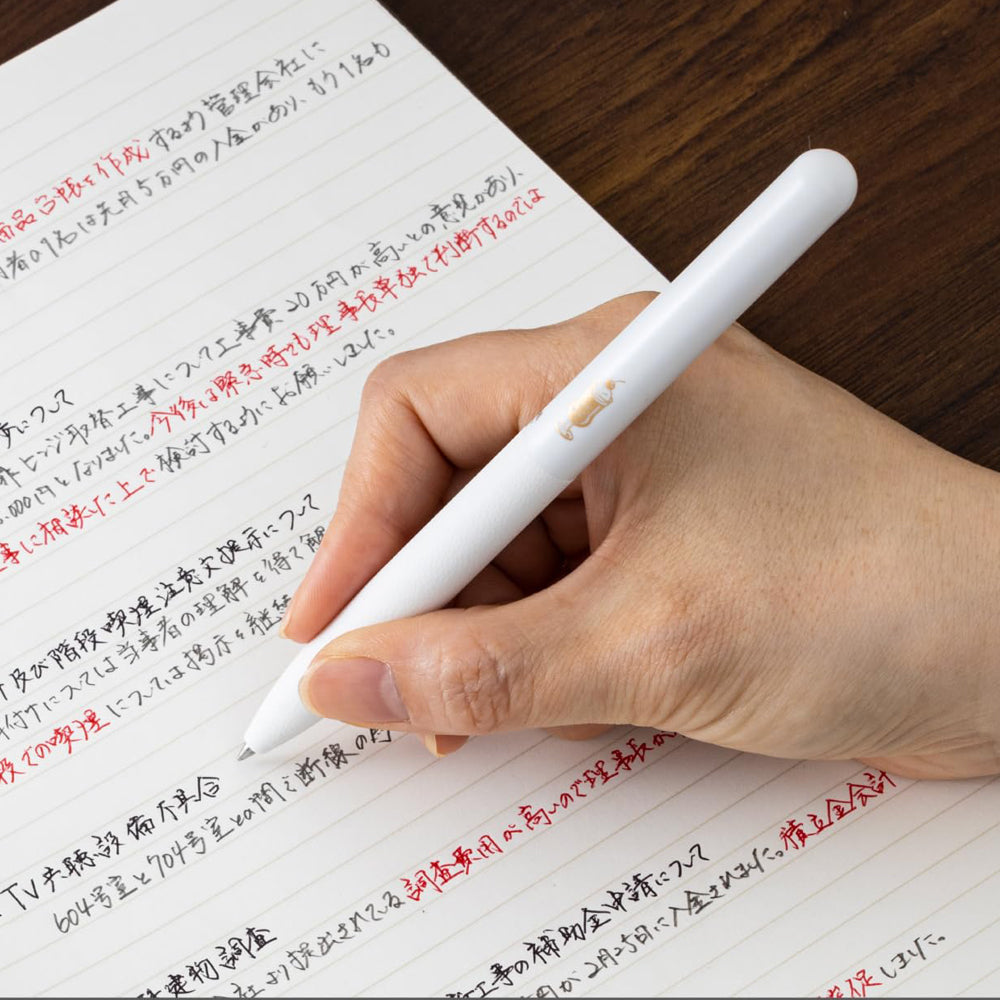 備品台帳を作成するよう管理会社に
者の1名は先月5万円の入金があり、もう1名も
について
ヒンジ取替工事について工事費20万円が高いとの意見があり、
,000円となりました。今後は緊急時でも理事長単独で判断するのでは
事に相談した上で検討するようにお願いしました。
及び階段喫煙注意文掲示について
付けについては当事者の理解を得て解
段での喫煙については掲示を継続
TV共聴設備不具合
604号室と704号室との間で断線の
建物調査
社より提出されている調査費用が高いので理事長が
工事の補助金申請について
円が2月25日に入金されました。積立金会計
促しました。